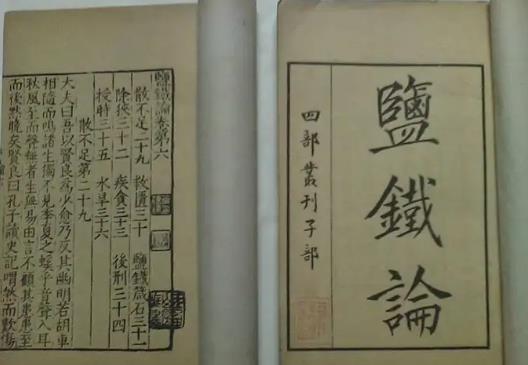 鹽鐵論
四部叢刊子部
鹽鐵論卷第六
散不足二十九 救匱三十 鹽鐵箴石三十一
除狹三十二 疾貪三十三 後刑三十四
授時三十五 水旱三十六
散不足第二十九
大夫曰吾以賢良為少愈乃反其幽明若胡車
相隨而鳴諸生獨不見季夏之螇乎音聲入耳
秋風至而聲無者生無易由言不顧其患患至
而後默晚矣賢良曰孔子讀史記喟然而歎傷